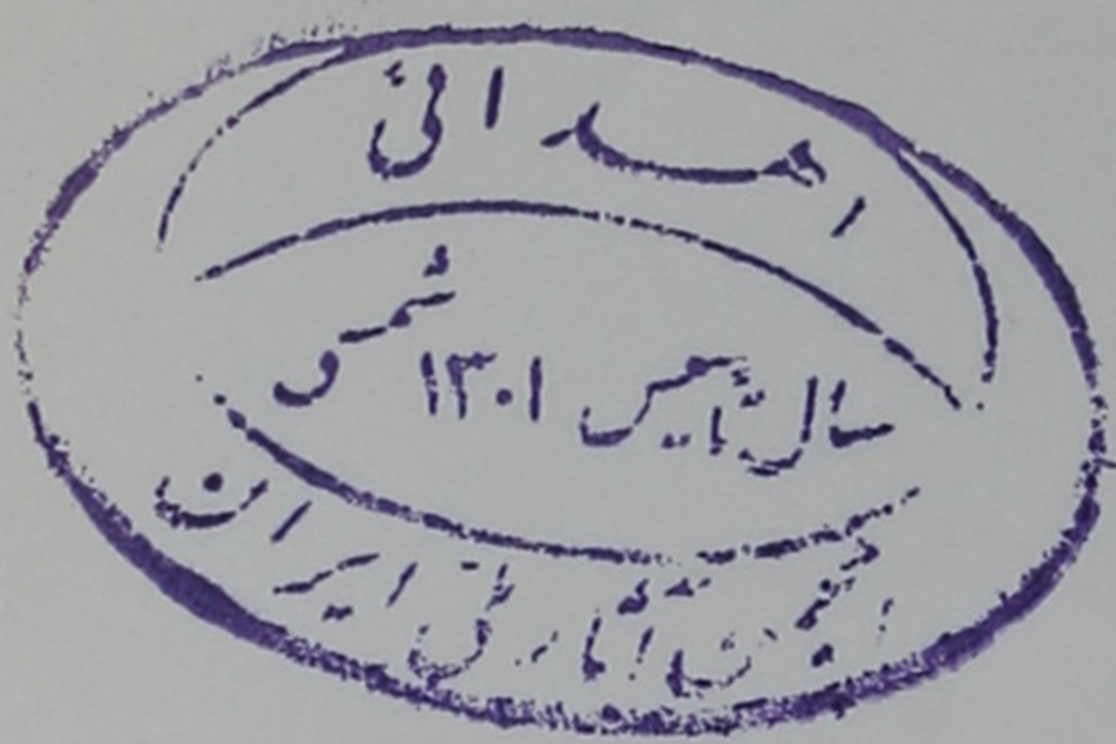 اهدائی
سال تأسیس ۱۳۰۱ شمسی
انجمن آثار ملی ایران